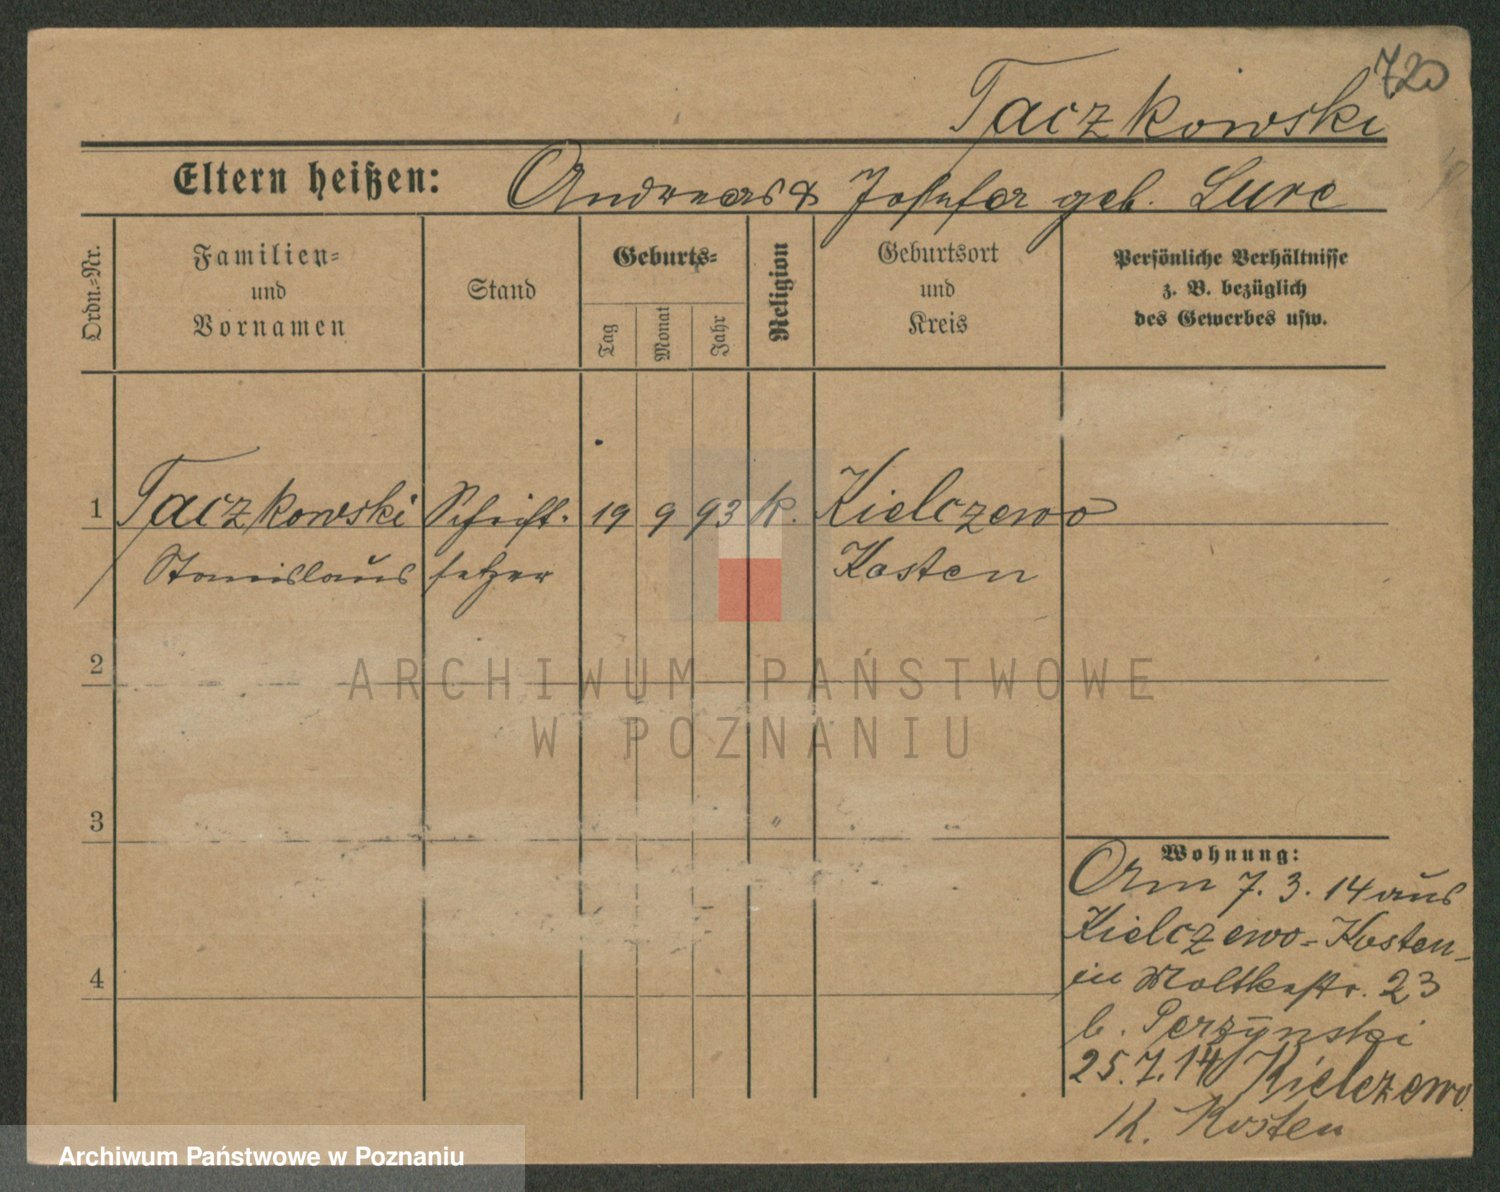 720
Taczkowski
Eltern heißen: Andreas & Josefa geb. Lurc
Ordn.=Nr.
Familien=
und
Vornamen
Stand
Geburts=
Tag
Monat
Jahr
Religion
Geburtsort
und
Kreis
Persönliche Verhältnisse
z. B. bezüglich
des Gewerbes usw.
1 Taczkowski Schrift- 19 9 93 k. Kielczewo
Stanislaus setzer Kosten
2
ARCHIWUM PAŃSTWOWE
W POZNANIU
3
4
Wohnung:
Am 7. 3. 14 aus
Kielczewo-Kosten-
in Moltkestr. 23
b. Perzynski
25.7.14 Kielczewo
K. Kosten
Archiwum Państwowe w Poznaniu